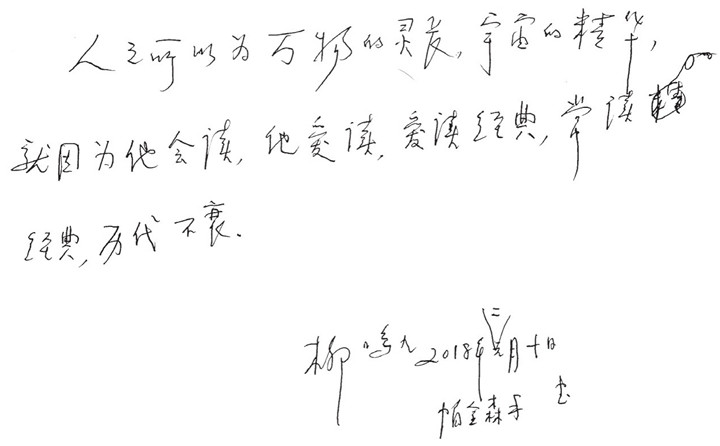 人之所以为万物的灵长，宇宙的精华，
就因为他会读，他爱读，爱读经典，常读
经典，历代不衰。
柳鸣九 2018年二月十日
帕金森手书